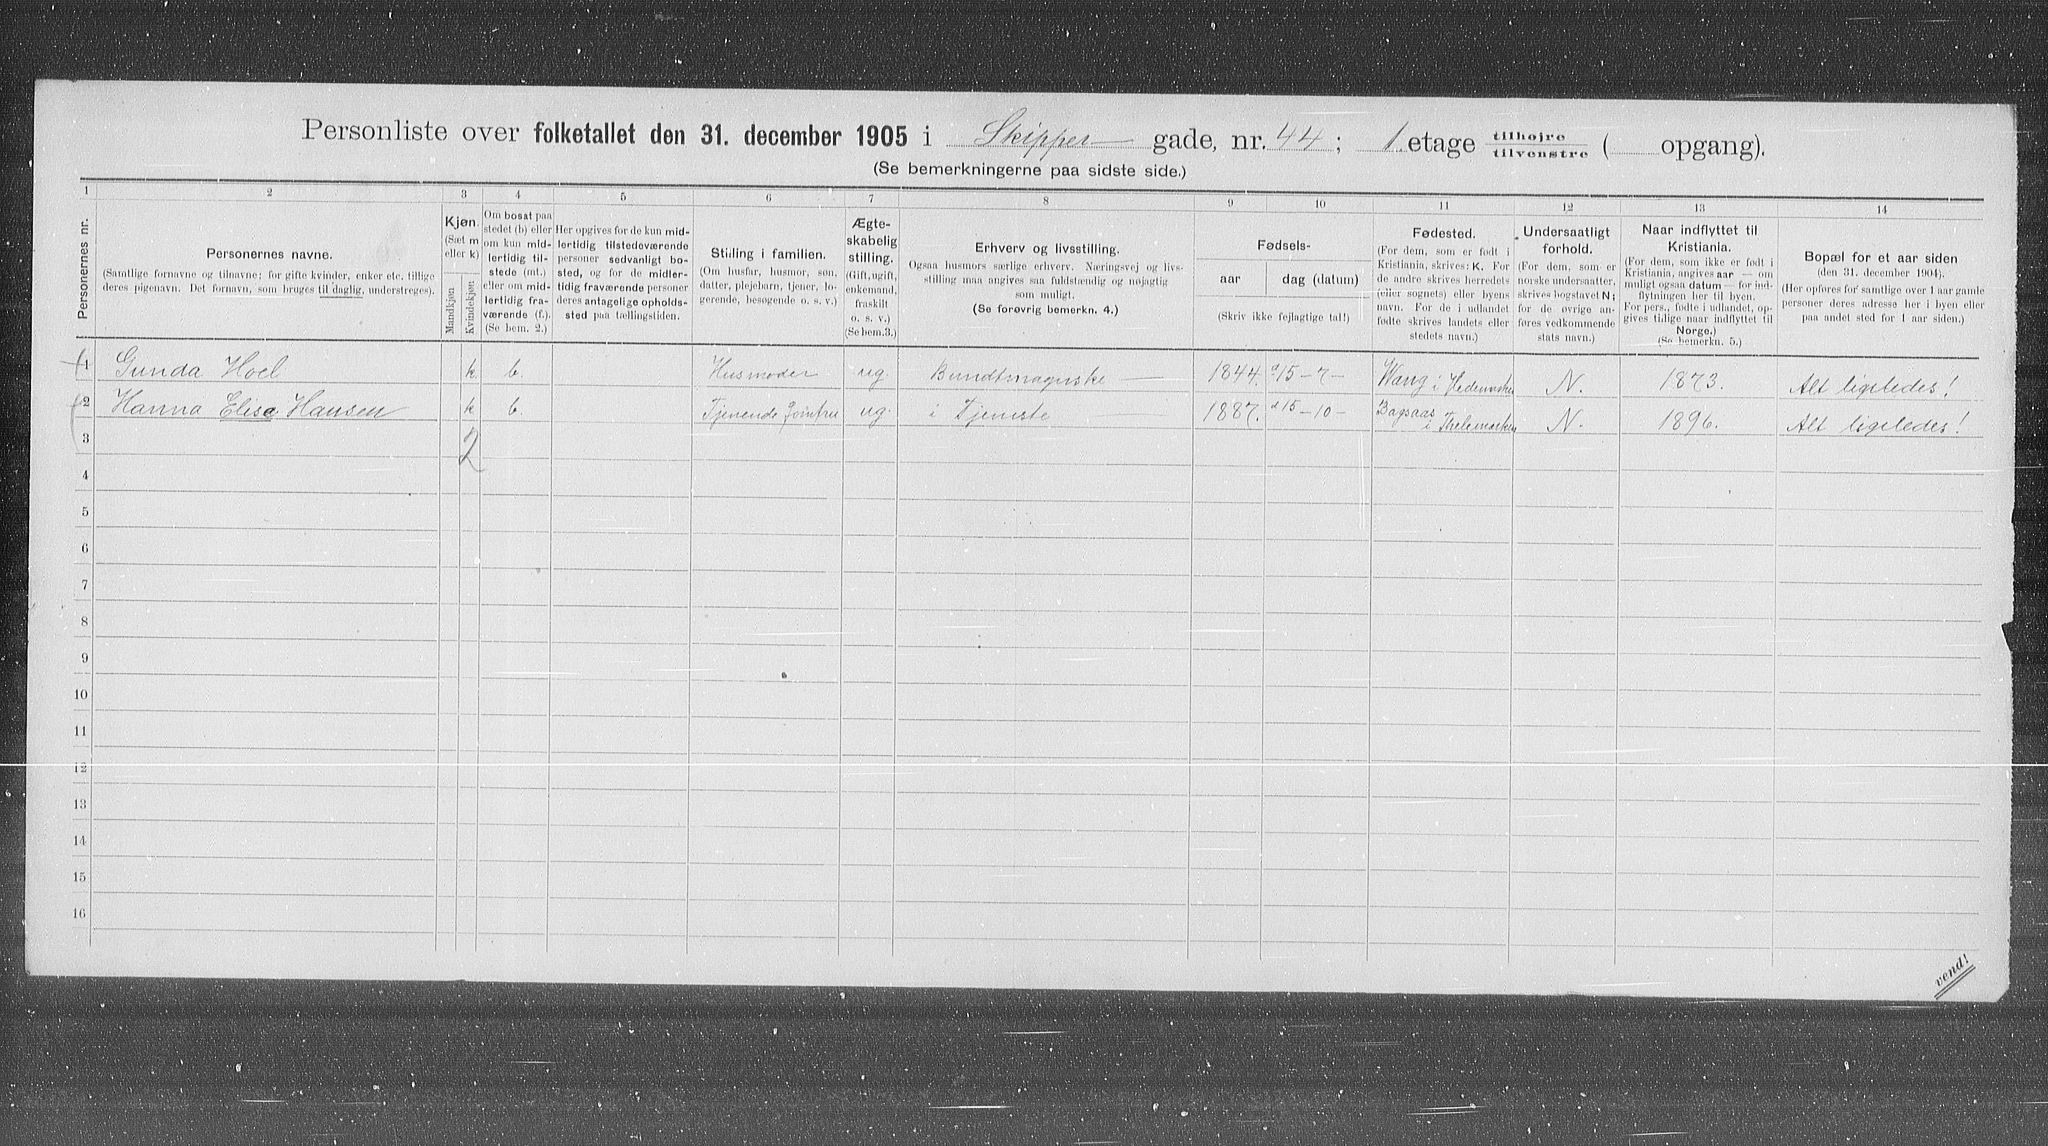 Personliste over folketallet den 31. december 1905 i Skipper gade, nr. 44; 1. etage tilhøjre tilvenstre ( opgang).
(Se bemerkningerne paa sidste side.)
1 2 3 4 5 6 7 8 9 10 11 12 13 14
Personernes nr.
Personernes navne.
(Samtlige fornavne og tilnavne; for gifte kvinder, enker etc. tillige
deres pigenavn. Det fornavn, som bruges til daglig, understreges).
Kjøn.
(Sæt m
eller k)
Mandkjøn
Kvindekjøn
Om bosat paa
stedet (b) eller
om kun mid-
lertidig til-
stede (mt.)
eller om mid-
lertidig fra-
værende (f.).
(Se bem. 2.)
Her opgives for de kun mid-
lertidig tilstedeværende
personer sedvanligt bo-
sted, og for de midler-
tidig fraværende personer
deres antagelige opholds-
sted paa tællingstiden.
Stilling i familien.
(Om husfar, husmor, søn,
datter, plejebarn, tjener, lo-
gerende, besøgende o. s. v.)
Ægte-
skabelig
stilling.
(Gift, ugift,
enkemand,
fraskilt
o. s. v.)
(Se bem.3.)
Erhverv og livsstilling.
Ogsaa husmors særlige erhverv. Næringsvej og livs-
stilling maa angives saa fuldstændig og nøjagtig
som muligt.
(Se forøvrig bemerkn. 4.)
Fødsels-
aar
dag (datum)
(Skriv ikke fejlagtige tal!)
Fødested.
(For dem, som er født i
Kristiania, skrives: K. For
de andre skrives herredets
(eller sognets) eller byens
navn. For de i udlandet
fødte skrives landets eller
stedets navn.)
Undersaatligt
forhold.
(For dem, som er
norske undersaatter,
skrives bogstavet N;
for de øvrige an-
føres vedkommende
stats navn.)
Naar indflyttet til
Kristiania.
(For dem, som ikke er født i
Kristiania, angives aar — om
muligt ogsaa datum — for ind-
flytningen her til byen.
For pers., fødte i udlandet, op-
gives tidlige naar indflyttet til
Norge.)
(Se bemerkn. 5.)
Bopæl for et aar siden
(den 31. december 1904).
(Her opføres for samtlige over 1 aar gamle
personer deres adresse her i byen eller
paa andet sted for 1 aar siden.)
1 Gunda Hoel k. b. Husmoder ug. Bundtmagerske 1844. 15-7- Wang i Hedemarken N. 1873. Alt ligeledes!
2 Hanna Elise Hansen k b. Tjenende Jomfru ug. i Tjeneste 1887. 15-10- i Thelemarken N. 1896. Alt ligeledes!
3
2
4
5
6
7
8
9
10
11
12
13
14
15
16
vend!